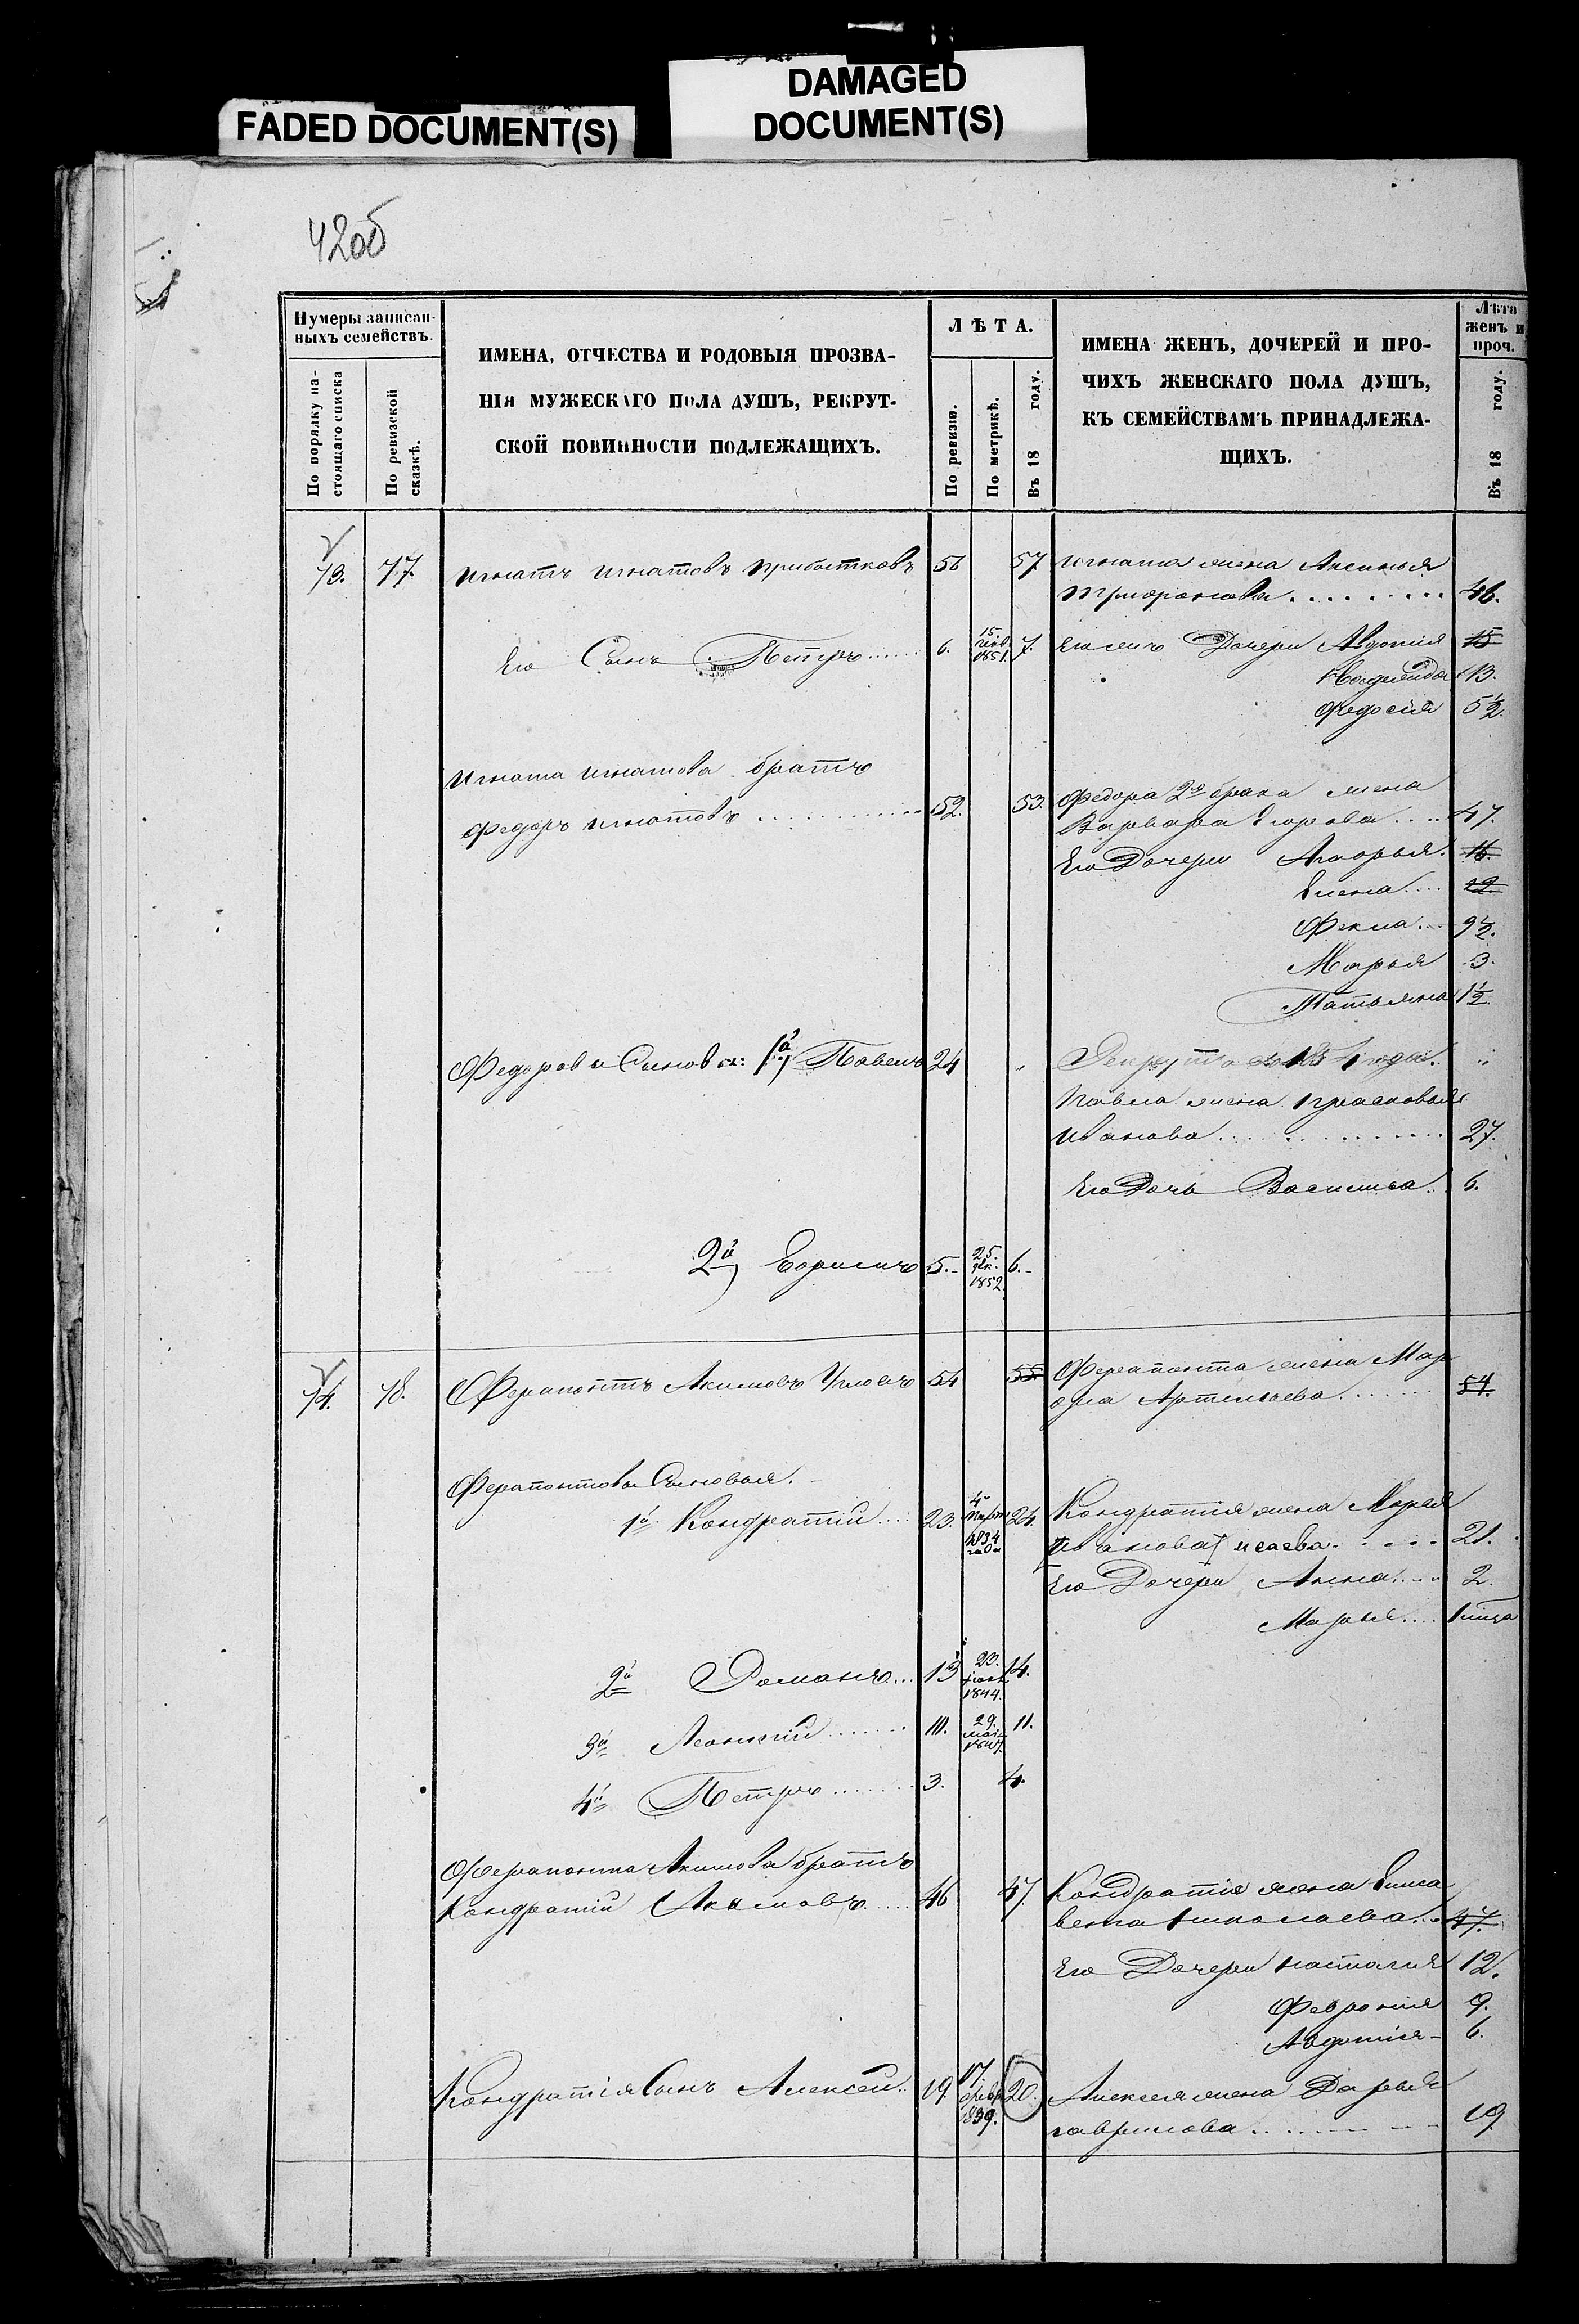 FADED DOCUMENT(S)
DAMAGED
DOCUMENT(S)
42об
Нумеры записан-
ныхъ семействъ.
По порядку на-
стоящаго списка
По ревизской
сказкѣ.
ИМЕНА, ОТЧЕСТВА И РОДОВЫЯ ПРОЗВА-
НІЯ МУЖЕСКАГО ПОЛА ДУШЪ, РЕКРУТ-
СКОЙ ПОВИННОСТИ ПОДЛЕЖАЩИХЪ.
ЛѢТА.
По ревизіи.
По метрикѣ.
Въ 18 году.
ИМЕНА ЖЕНЪ, ДОЧЕРЕЙ И ПРО-
ЧИХЪ ЖЕНСКАГО ПОЛА ДУШЪ,
КЪ СЕМЕЙСТВАМЪ ПРИНАДЛЕЖА-
ЩИХЪ.
Лѣта
женъ и
проч.
Въ 18 году.
73. 77. Игнатъ Игнатовъ Прибытковъ 56 57 Игната жена Аксинья
Трифонова 46.
Его Сынъ Петръ 6. 15. 1851. 7. Дочери Авдотія 15
Надежда 13.
Федосія 5½
Игната Игнатова братъ
Федоръ Игнатовъ 52. 53. Федора 2го брака жена
Варвара Егорова 47.
Его Дочери 16.
Елена
Фекла 9½.
Марья 3.
Татьяна 1½
Федора Сыновья: 1й Павелъ 24 Рекрутъ 1854 года.
Павла жена Прасковья
Иванова 27.
Его Дочь Василиса 6.
2й 5. 25. дек. 1852. 6.
74. 78. Ферапонтъ Акимовъ 54 55 Ферапонта жена Мар
Артемьева 54.
Ферапонтовы Сыновья.
1й Кондратій 23. 4 1834 года 24. Кондратія жена Марья
Иванова Исаева 21.
Его Дочери Анна 2.
Марья
2й Романъ 13 1844. 14.
3й Леонтій 10. 29. мая 11.
4й Петръ 3. 4.
Ферапонта Акимова братъ
Кондратій Акимовъ 46 47. Кондратія жена Елиса
вета Николаева 47.
Его Дочери Наталия 12.
Феврония 9.
Авдотія 6.
Кондратія Сынъ Алексей 19. 17. февр. 1839. 20. Алексея жена Дарья
Гаврилова 19